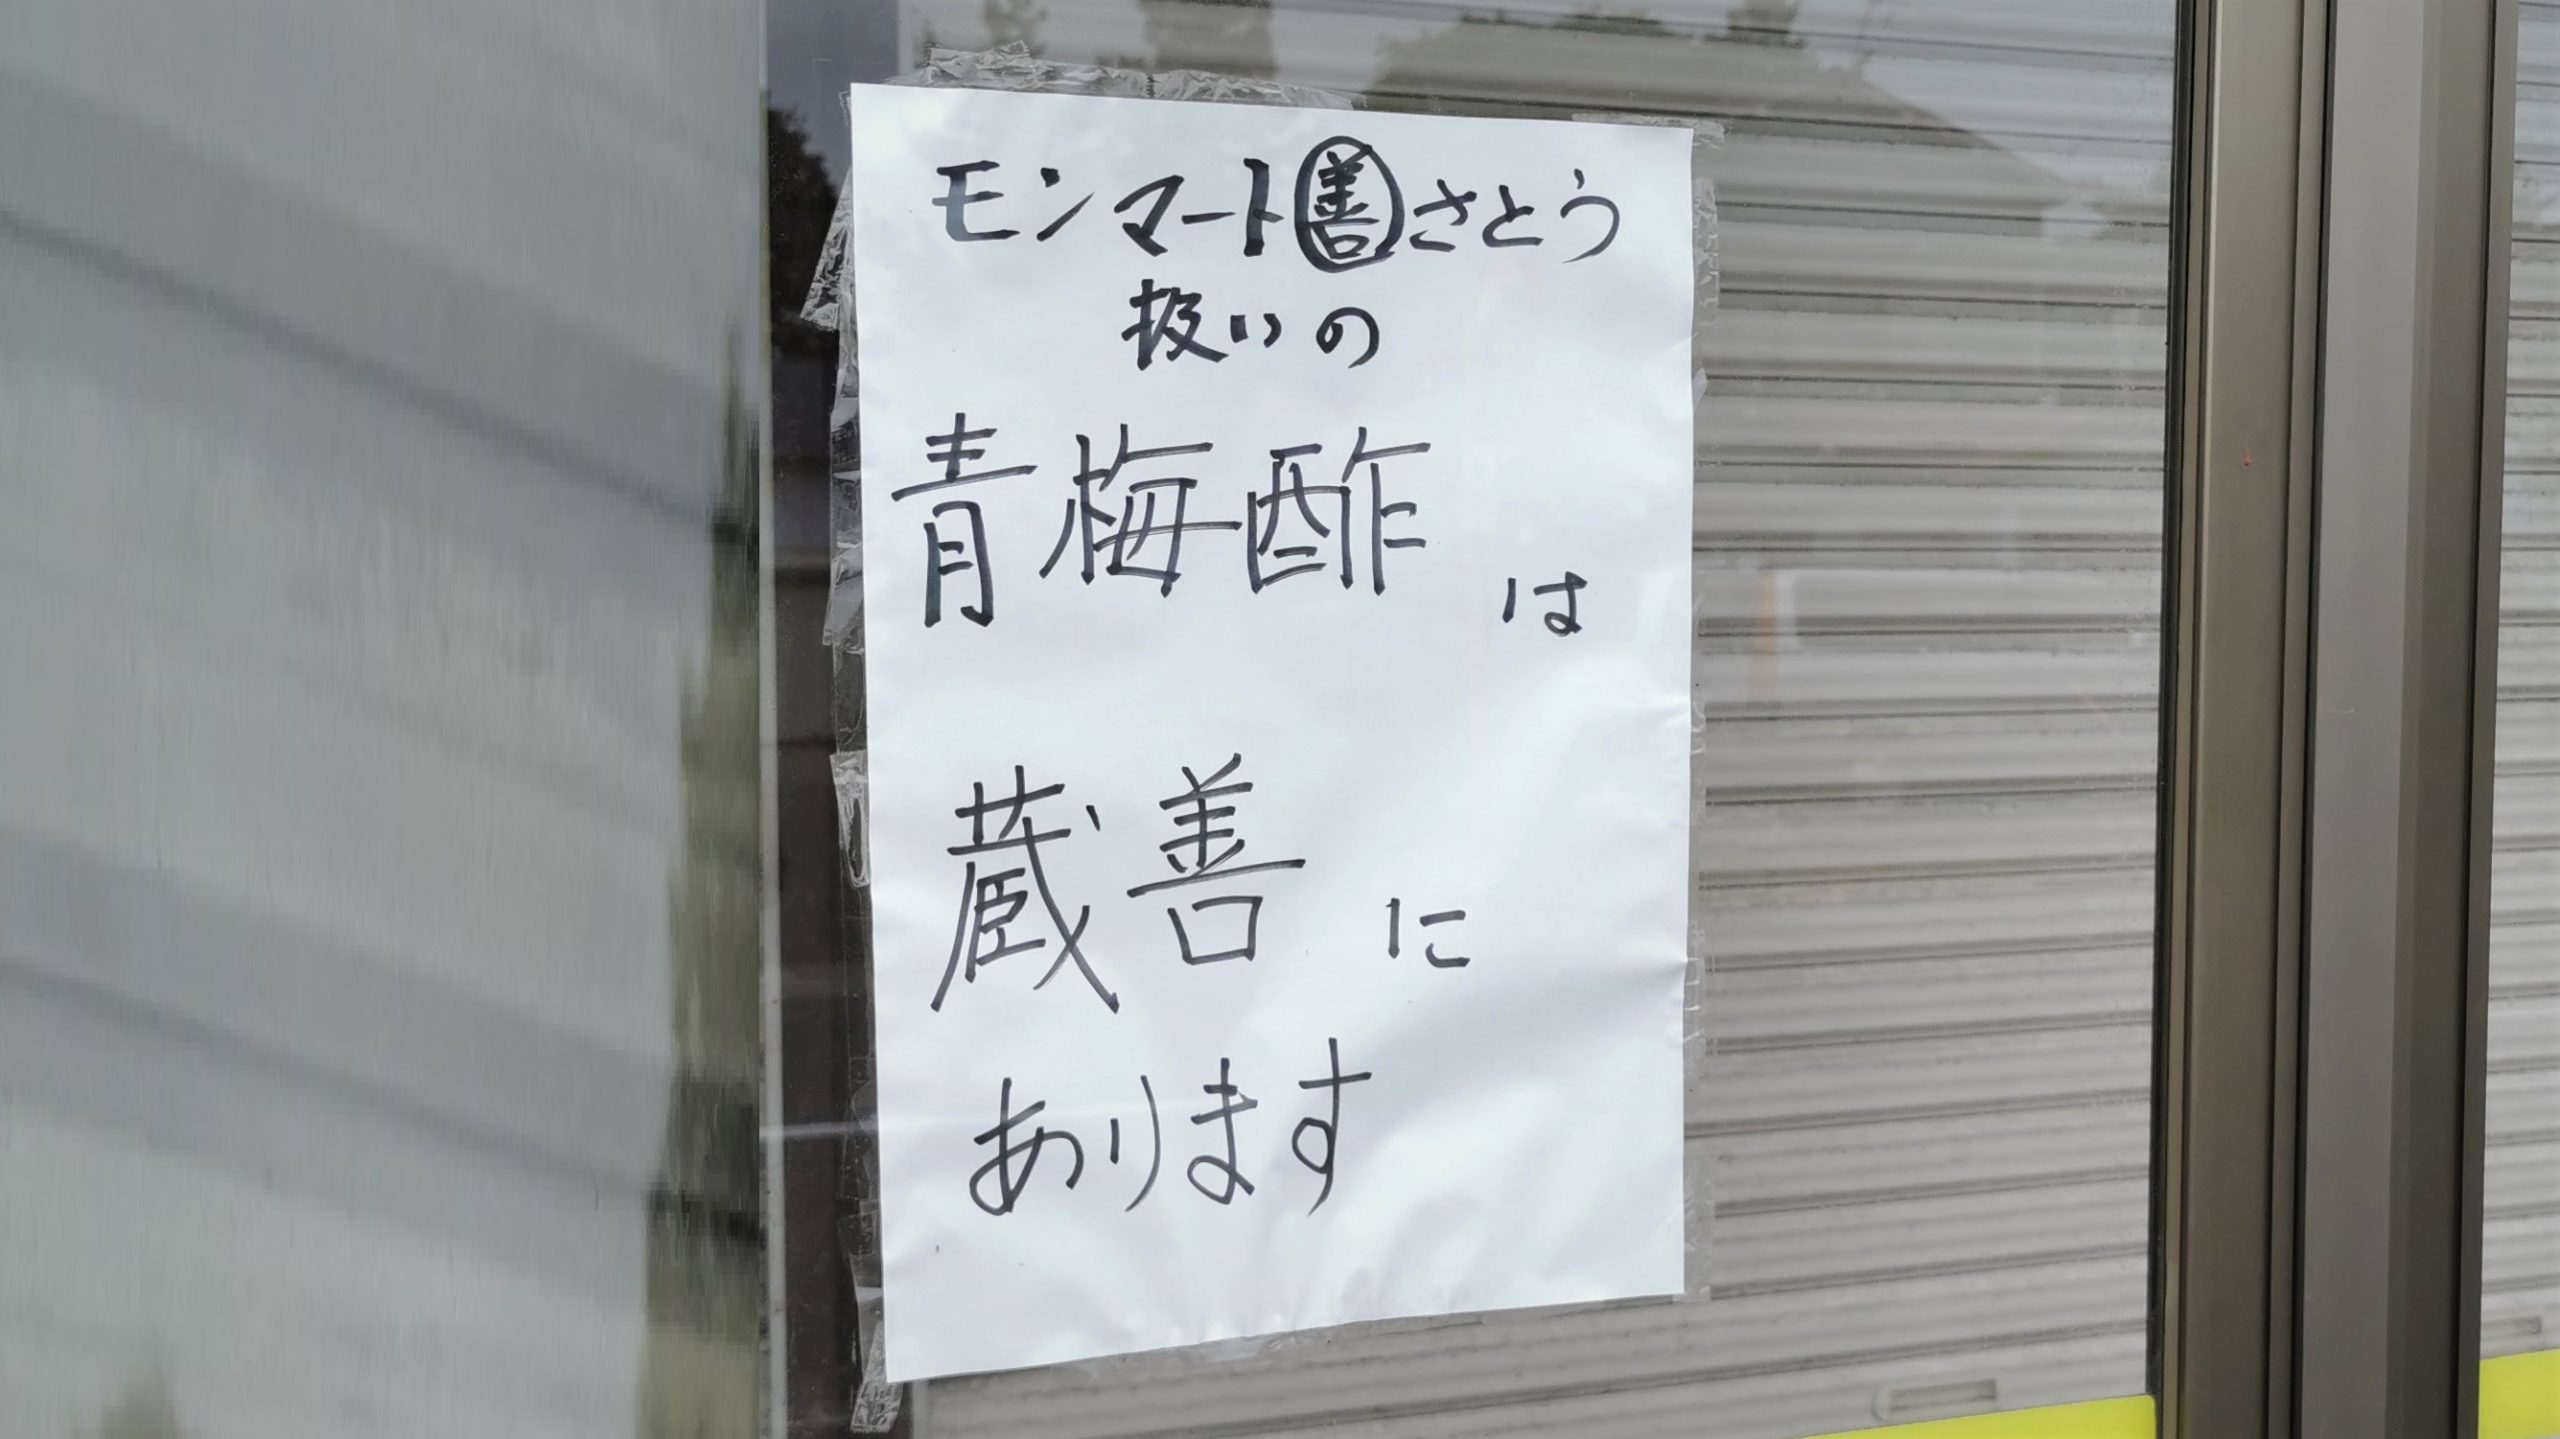 モンマート㊂さとう
扱いの
青梅酢は
蔵善に
あります